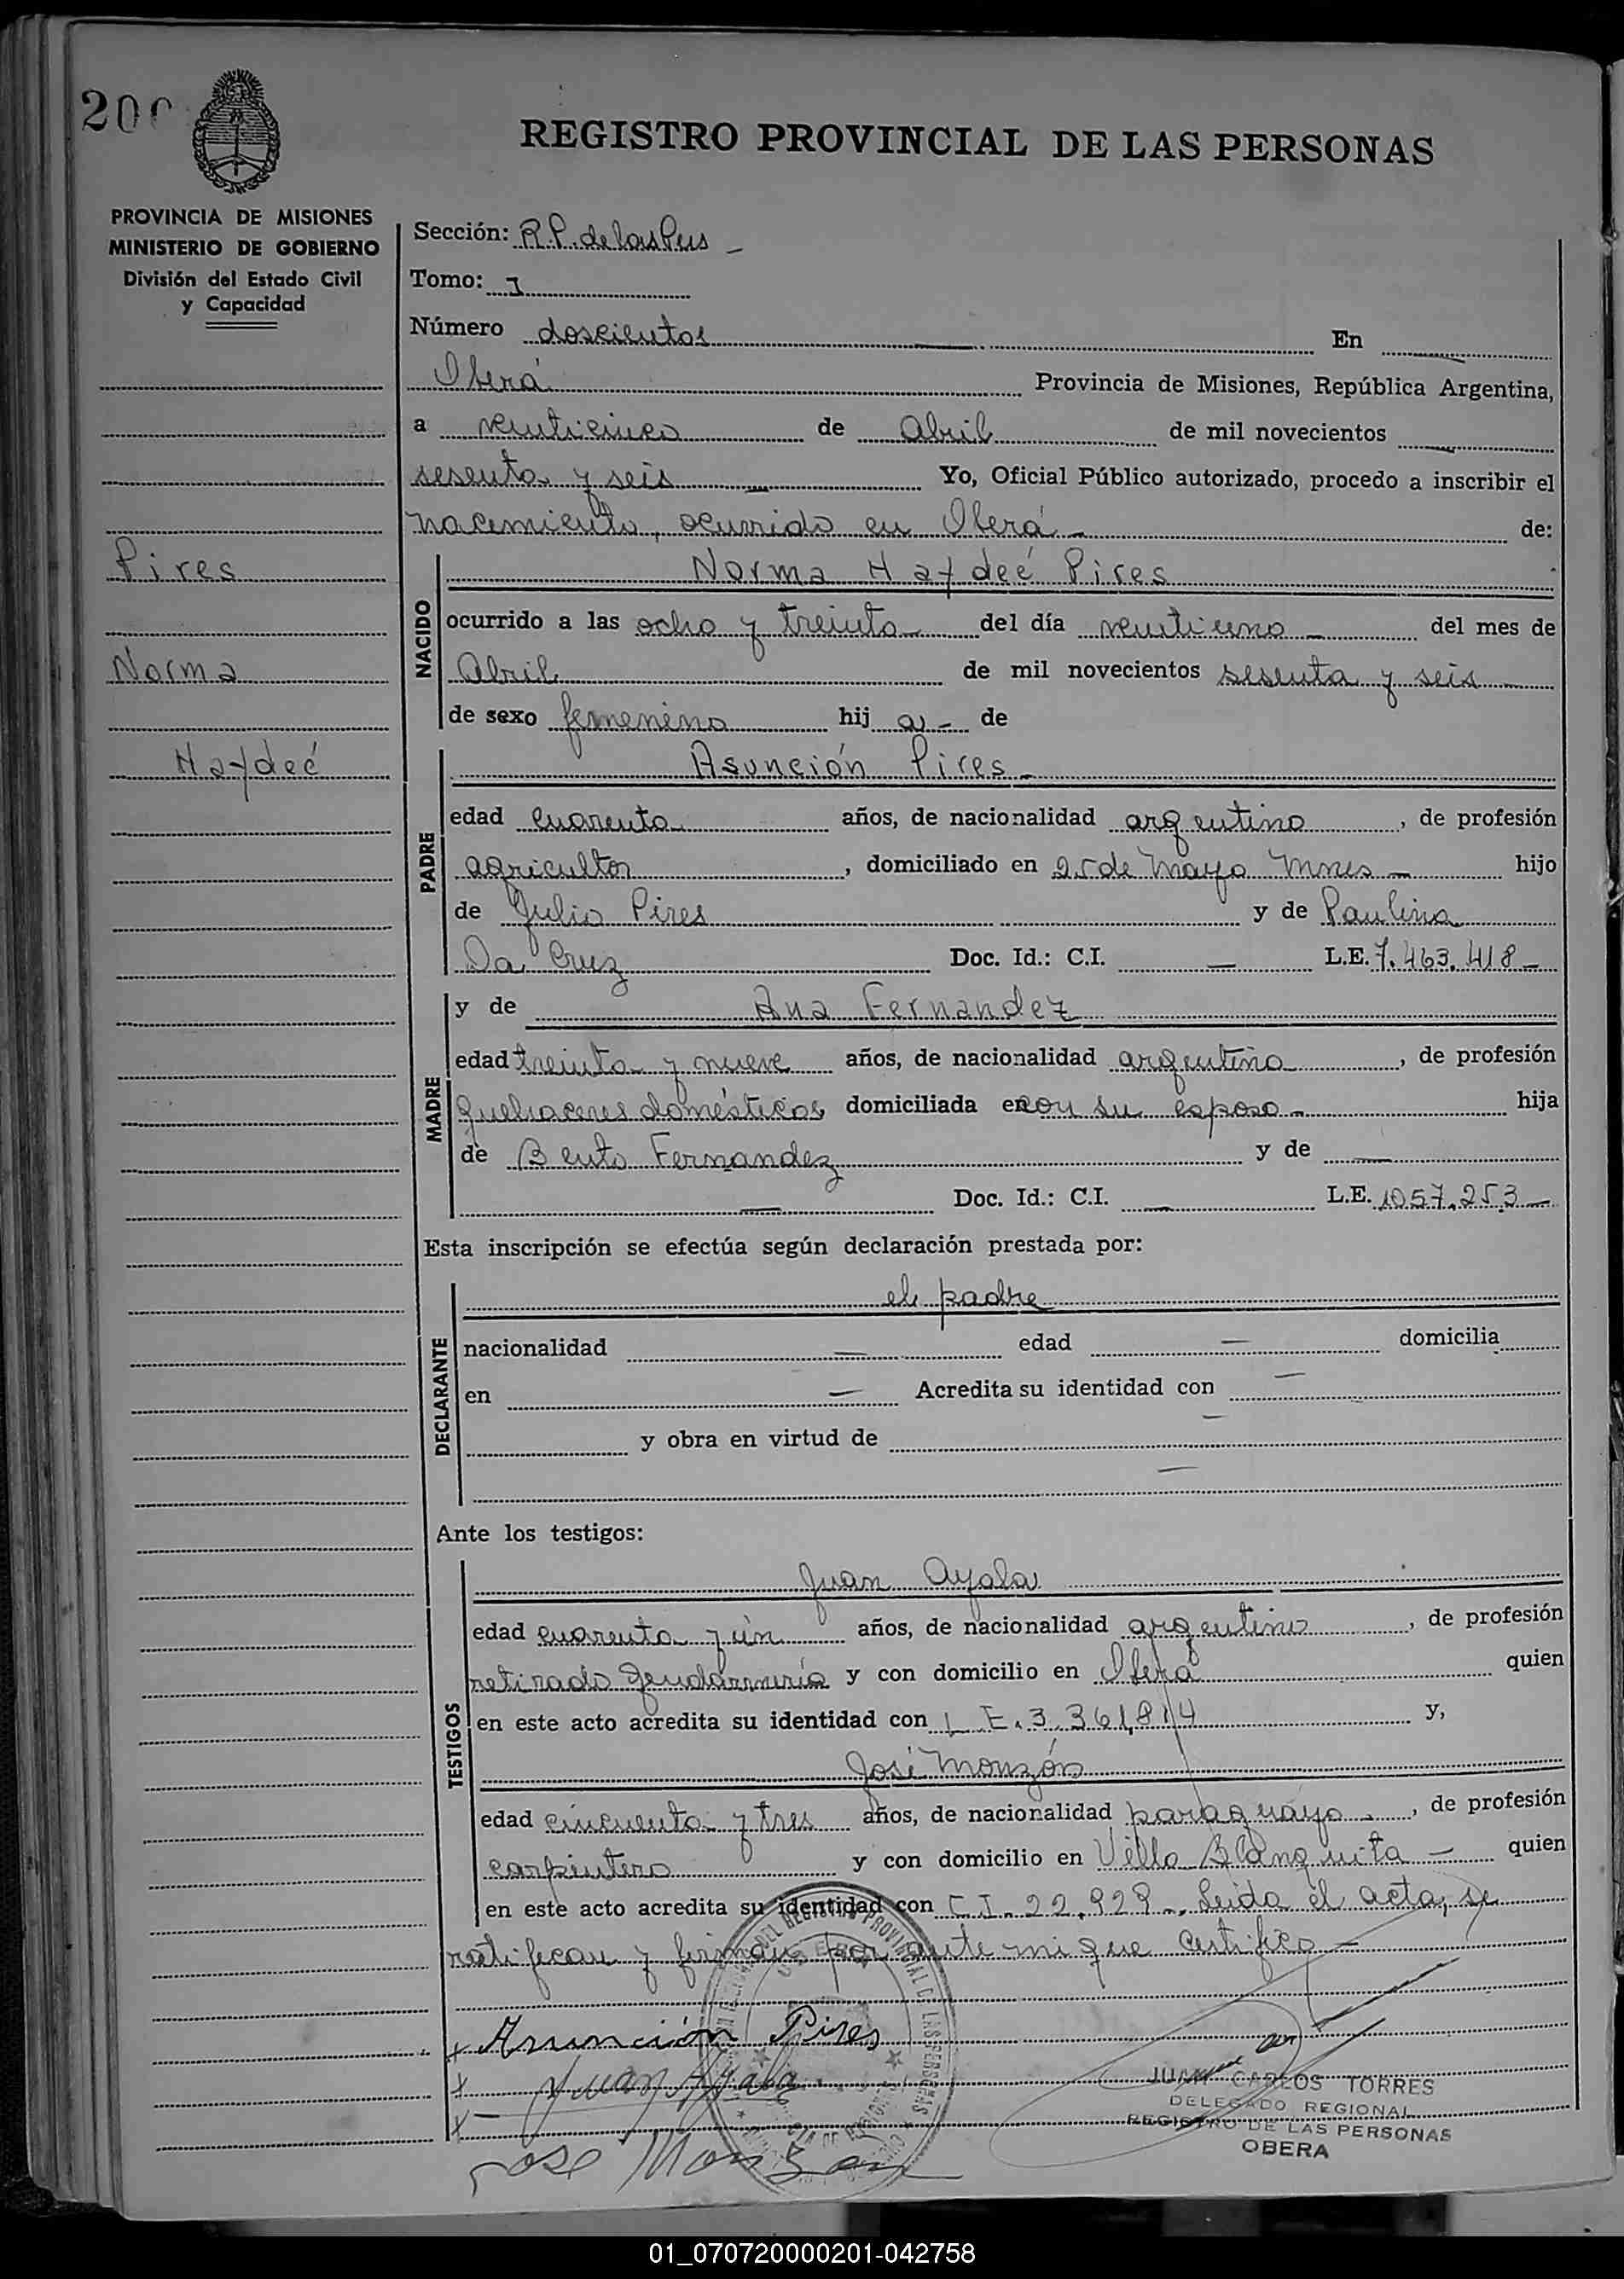 200
REGISTRO PROVINCIAL DE LAS PERSONAS
PROVINCIA DE MISIONES
MINISTERIO DE GOBIERNO
División del Estado Civil
y Capacidad
Pires
Norma
Haydeé
Sección: R.P. de las Pers -
Tomo: I
Número doscientos — En —
Oberá Provincia de Misiones, República Argentina,
a veinticinco de Abril de mil novecientos —
sesenta y seis — Yo, Oficial Público autorizado, procedo a inscribir el
nacimiento, ocurrido en Oberá - de:
NACIDO
Norma Haydeé Pires
ocurrido a las ocho y treinta del día veintiuno - del mes de
Abril de mil novecientos sesenta y seis —
de sexo femenino hij a - de
PADRE
Asunción Pires -
edad cuarenta años, de nacionalidad argentino, de profesión
agricultor, domiciliado en 25 de Mayo Mnes — hijo
de Julio Pires y de Paulina
Da Cruz Doc. Id.: C.I. — L.E. 7.463.418 -
MADRE
y de Ana Fernandez
edad treinta y nueve años, de nacionalidad argentina, de profesión
quehaceres domésticos domiciliada en con su esposo - hija
de Bento Fernandez y de —
— Doc. Id.: C.I. — L.E. 1057.253 —
Esta inscripción se efectúa según declaración prestada por:
DECLARANTE
el padre
nacionalidad — edad — domicilia
en — Acredita su identidad con —
y obra en virtud de —
—
Ante los testigos:
TESTIGOS
Juan Ayala
edad cuarenta y un años, de nacionalidad argentino, de profesión
retirado gendarmería y con domicilio en Oberá quien
en este acto acredita su identidad con L E. 3.361.814 y,
José Monzón
edad cincuenta y tres años, de nacionalidad paraguayo -, de profesión
carpintero y con domicilio en Villa Blanquita — quien
en este acto acredita su identidad con C I. 22.929 -. Leida el acta, se
ratifican y firman por ante mi que certifico —
x Asunción Pires
x Juan Ayala
x — Jose Monzon
JUAN CARLOS TORRES
DELEGADO REGIONAL
REGISTRO DE LAS PERSONAS
OBERA
01_070720000201-042758